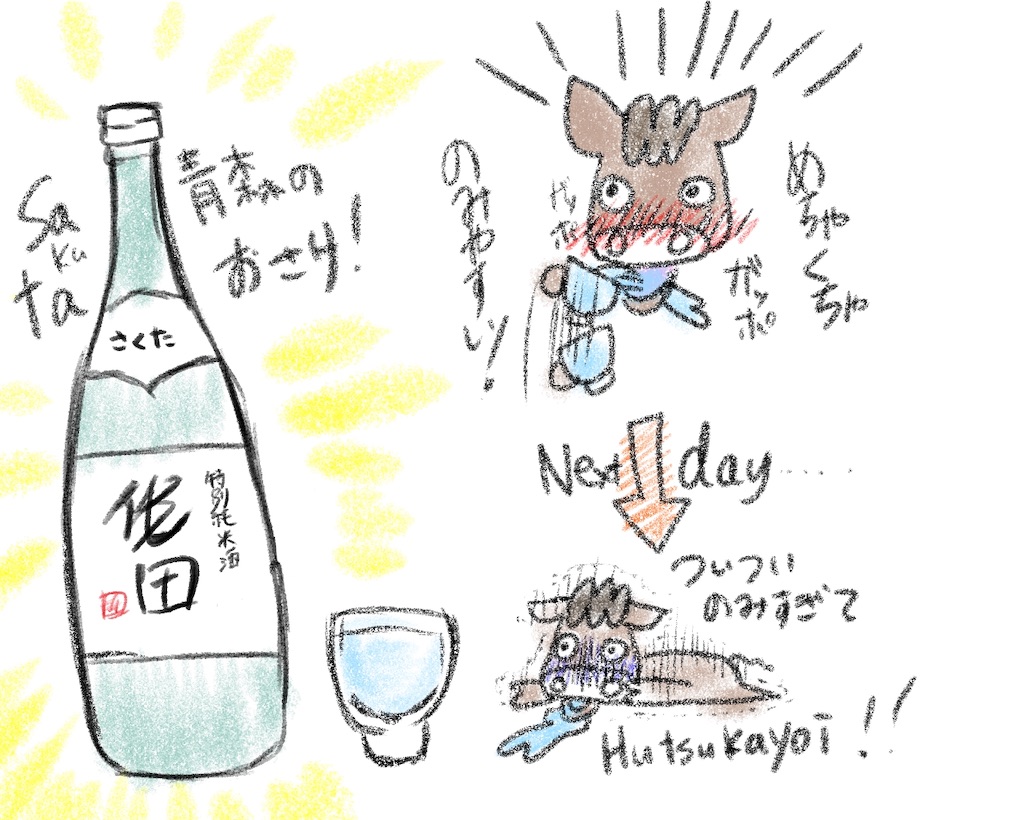 Sa
ku
ta
青森の
おさけ!
さくた
特別純米酒
作田
めちゃくちゃ
のみやすい!
ガッポ
ガッポ
Next day......
ついつい
のみすぎて
Hutsukayoi!!